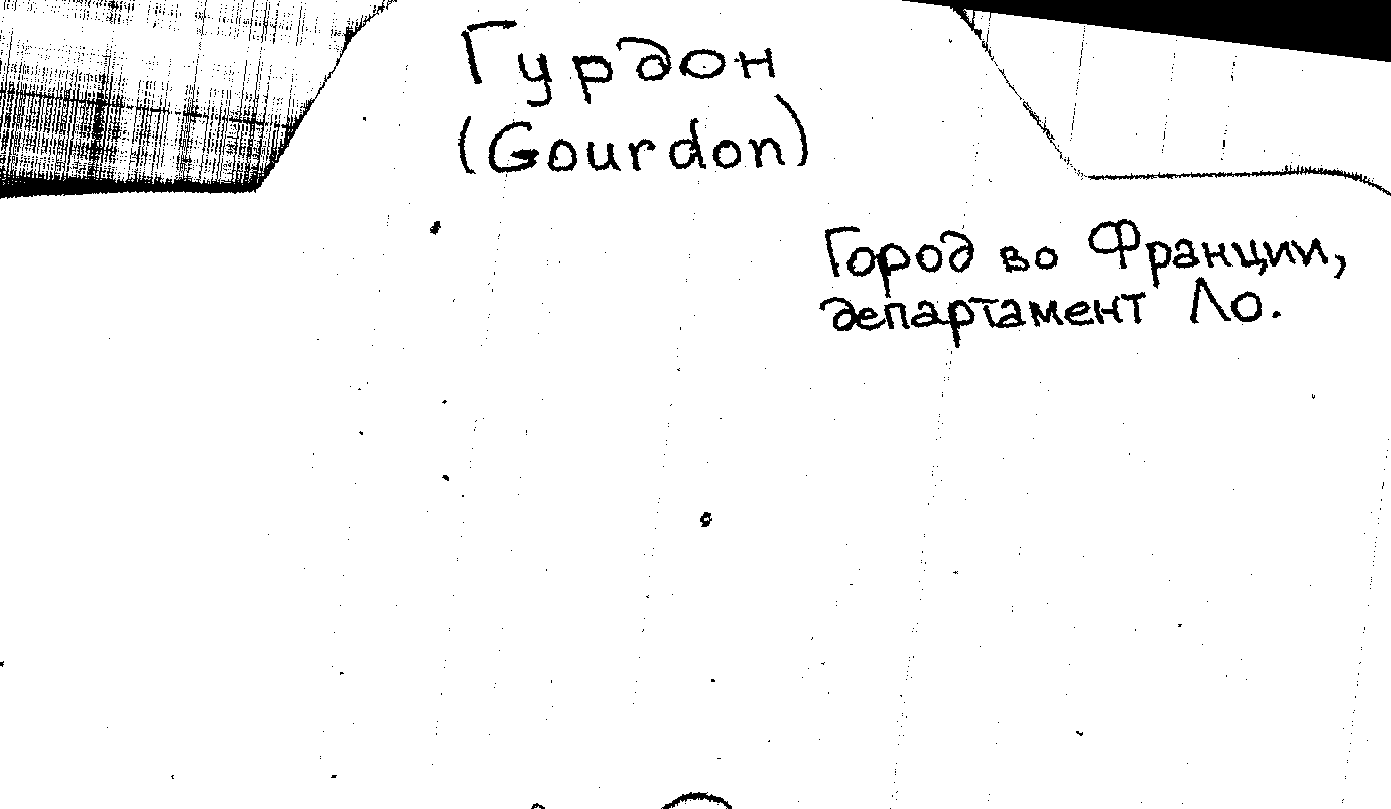 Гурдон
(Gourdon)
Город во Франции,
департамент Ло.